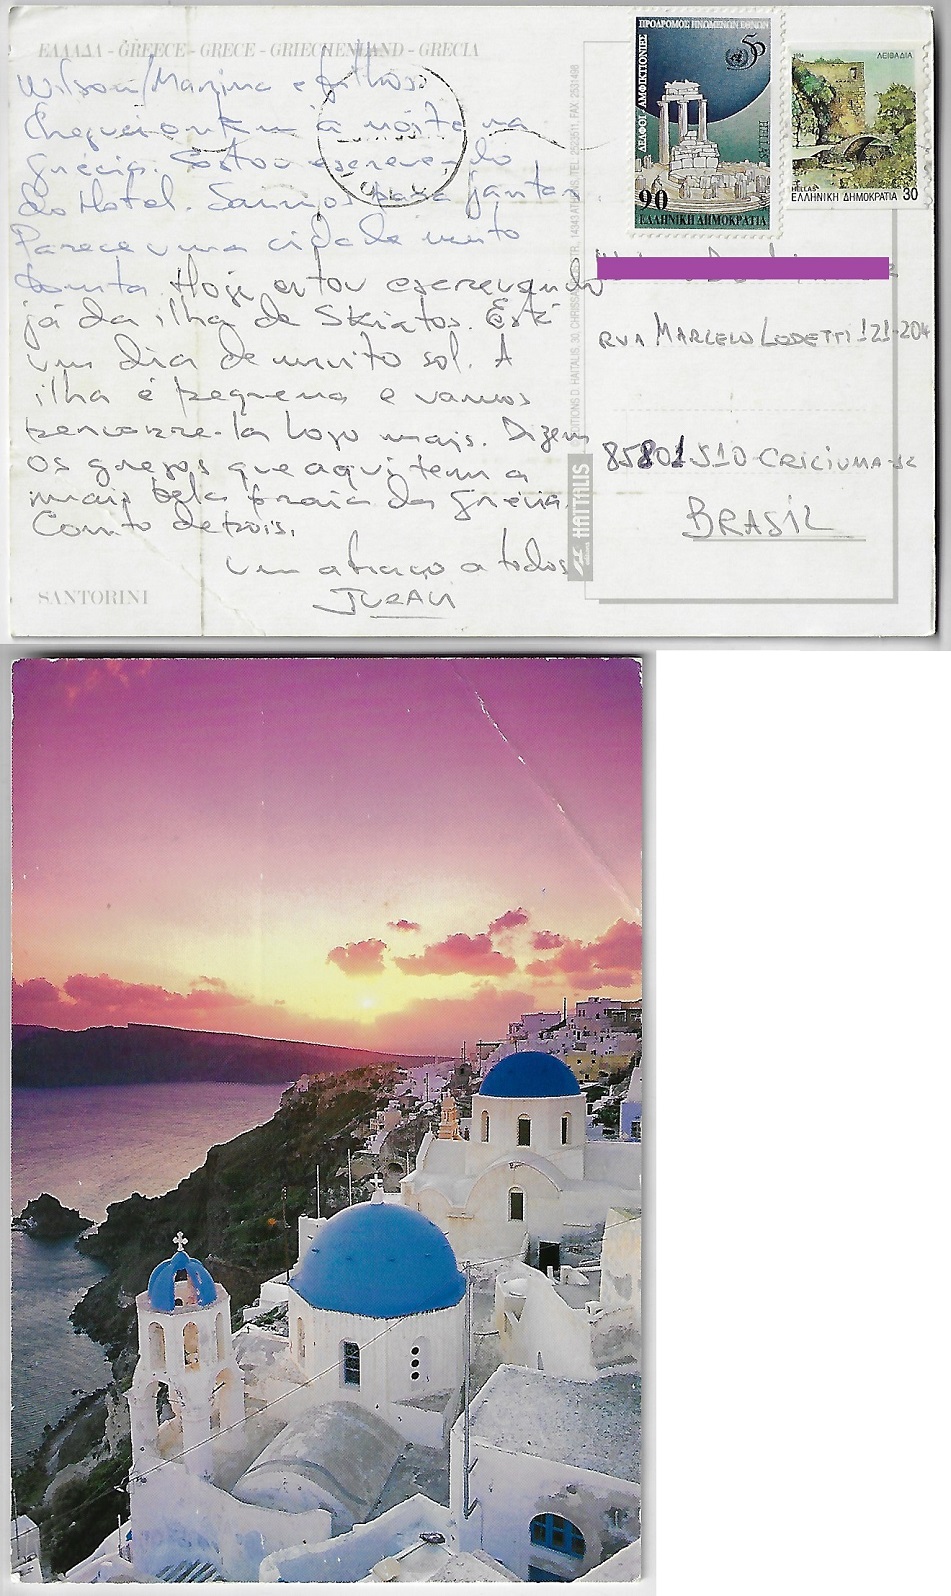 ΕΛΛΑΔΑ - GREECE - GRECE - GRIECHENLAND - GRECIA
Wilson/Marina e filhos:
Cheguei ontem à noite na
Grécia. Estou escrevendo
do Hotel. Saimos para jantar
Parece uma cidade muito
bonita. Hoje estou escrevendo
já da ilha de Skiatos. Está
um dia de muito sol. A
ilha é pequena e vamos
percorre-la logo mais. Dizem
os gregos que aqui tem a
mais bela praia da Grécia.
Conto depois.
Um abraço a todos
JURAN
SANTORINI
ΠΡΟΔΡΟΜΟΣ ΗΝΩΜΕΝΩΝ ΕΘΝΩΝ
ΔΕΛΦΟΙ - ΑΜΦΙΚΤΙΟΝΙΕΣ
50
HELLAS
90
ΕΛΛΗΝΙΚΗ ΔΗΜΟΚΡΑΤΙΑ
1994
ΛΕΙΒΑΔΙΑ
HELLAS
ΕΛΛΗΝΙΚΗ ΔΗΜΟΚΡΑΤΙΑ 30
EDITIONS D. HAITALIS, 30 CHRISSA
HAITALIS
RUA MARCELO LODETTI 121-204
85801510-CRICIUMA-SC
BRASIL